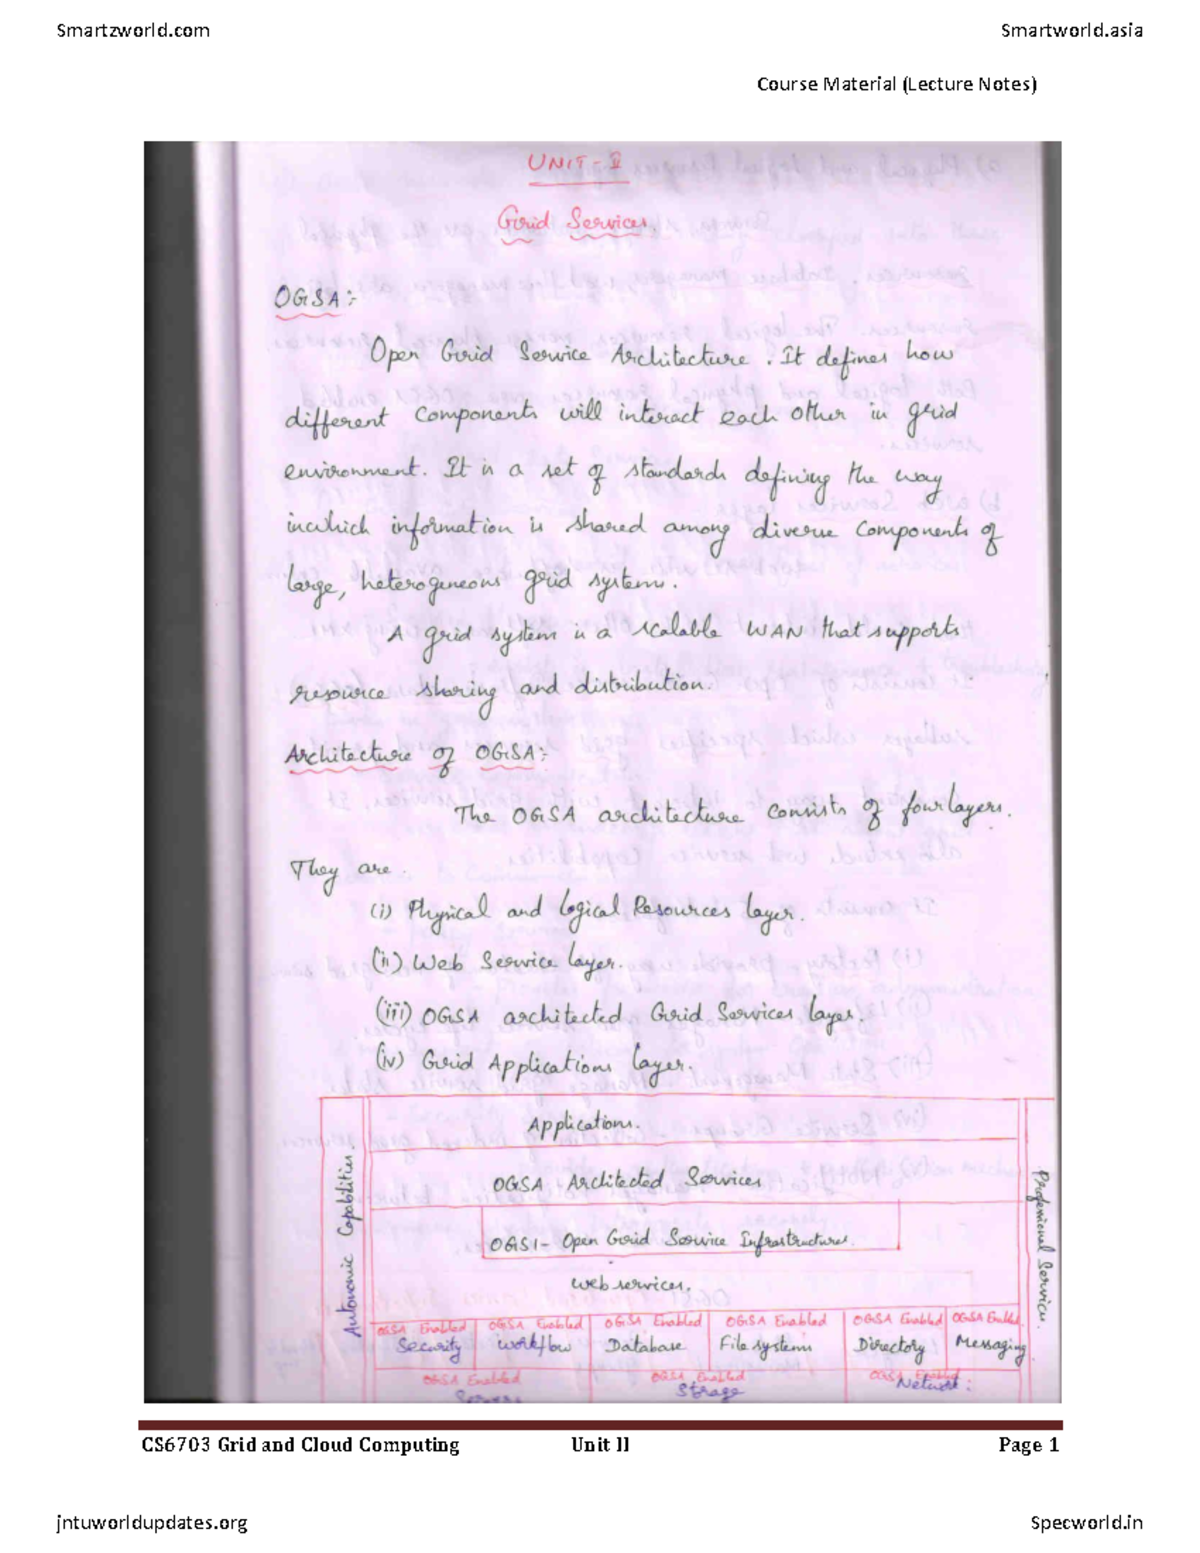 Smartzworld.com Smartworld.asia
Course Material (Lecture Notes)
UNIT-II
Grid Services
OGSA:-
Open Grid Service Architecture. It defines how
different components will interact each other in grid
environment. It is a set of standards defining the way
inwhich information is shared among diverse components of
large, heterogeneous grid systems.
A grid system is a scalable WAN that supports
resource sharing and distribution.
Architecture of OGSA:-
The OGSA architecture consists of four layers.
They are.
(i) Physical and Logical Resources layer.
(ii) Web Service layer.
(iii) OGSA architected Grid Services layer.
(iv) Grid Applications layer.
Autonomic Capabilities.
Applications.
OGSA Architected Services.
OGSI- Open Grid Service Infrastructures.
web services.
OGSA Enabled OGSA Enabled OGSA Enabled OGSA Enabled OGSA Enabled OGSA Enabled
Security Workflow Database File systems Directory Messaging
OGSA Enabled OGSA Enabled OGSA Enabled
Storage Network:
Professional Services.
CS6703 Grid and Cloud Computing Unit II Page 1
jntuworldupdates.org Specworld.in